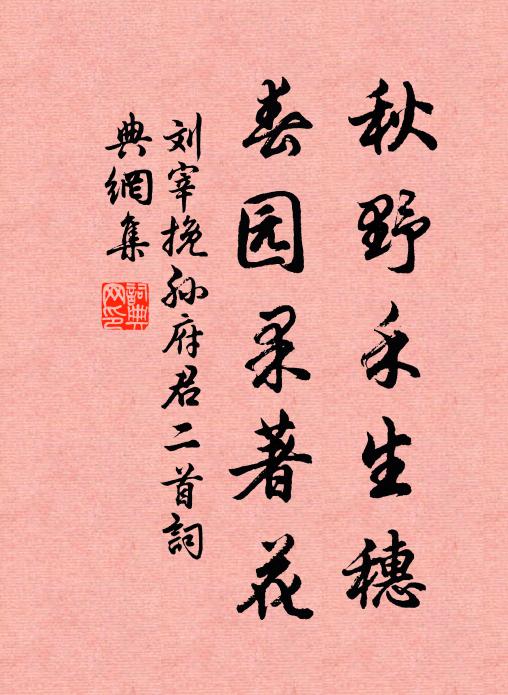 秋野禾生穗
春园果著花
刘宰挽孙府君二首詞
典網集
詞典网印